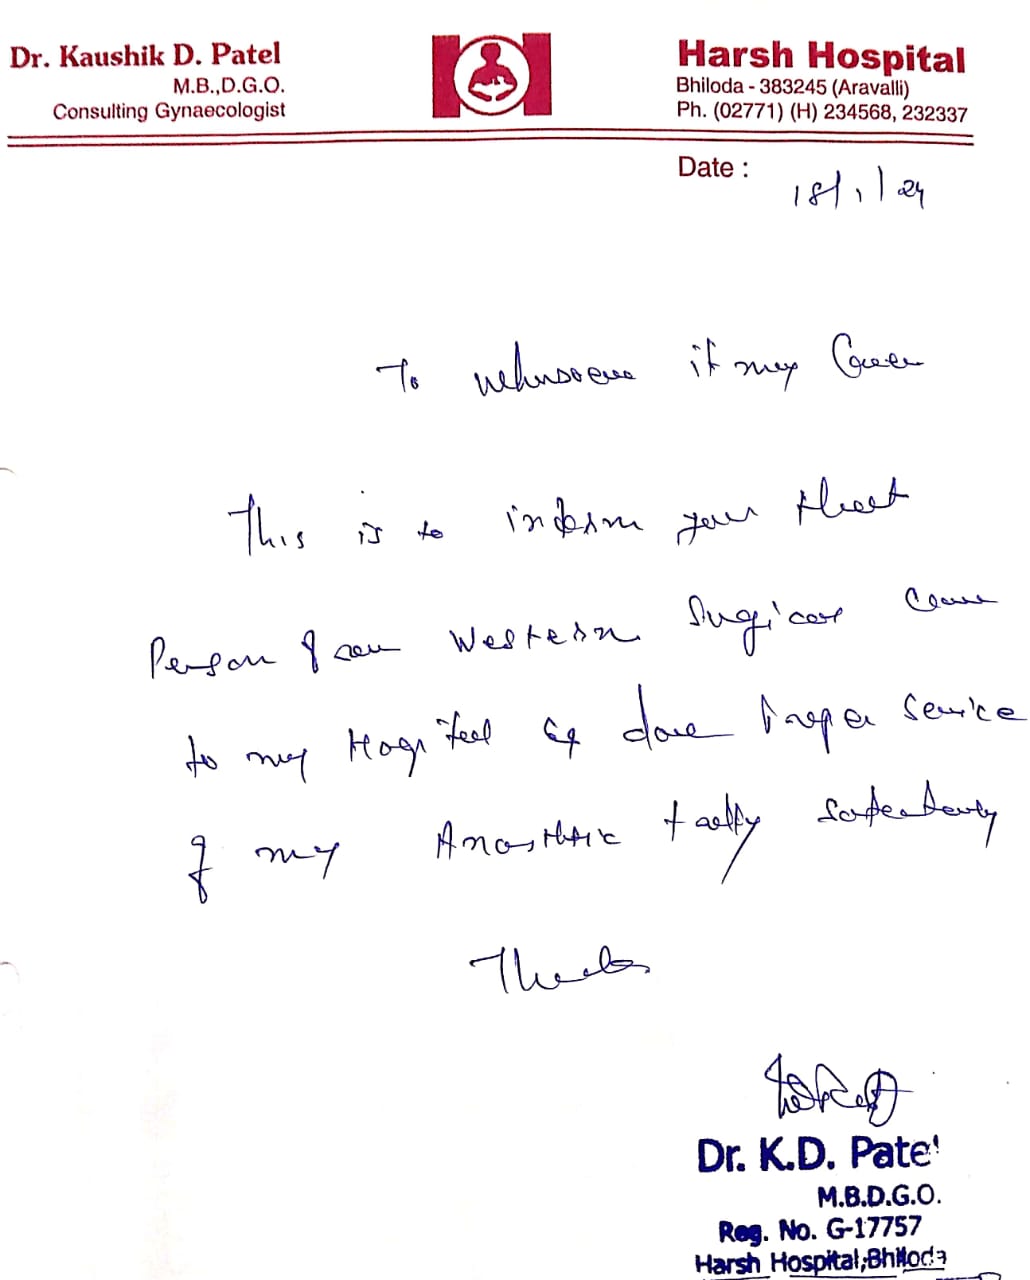 Dr. Kaushik D. Patel
M.B.,D.G.O.
Consulting Gynaecologist
Harsh Hospital
Bhiloda - 383245 (Aravalli)
Ph. (02771) (H) 234568, 232337
Date : 18/1/24
To whomsoever it may
This is to inform your that
Person from Western Surgical came
to my Hospital & done proper service
of my
Thanks
Dr. K.D. Patel
M.B.D.G.O.
Reg. No. G-17757
Harsh Hospital,Bhiloda